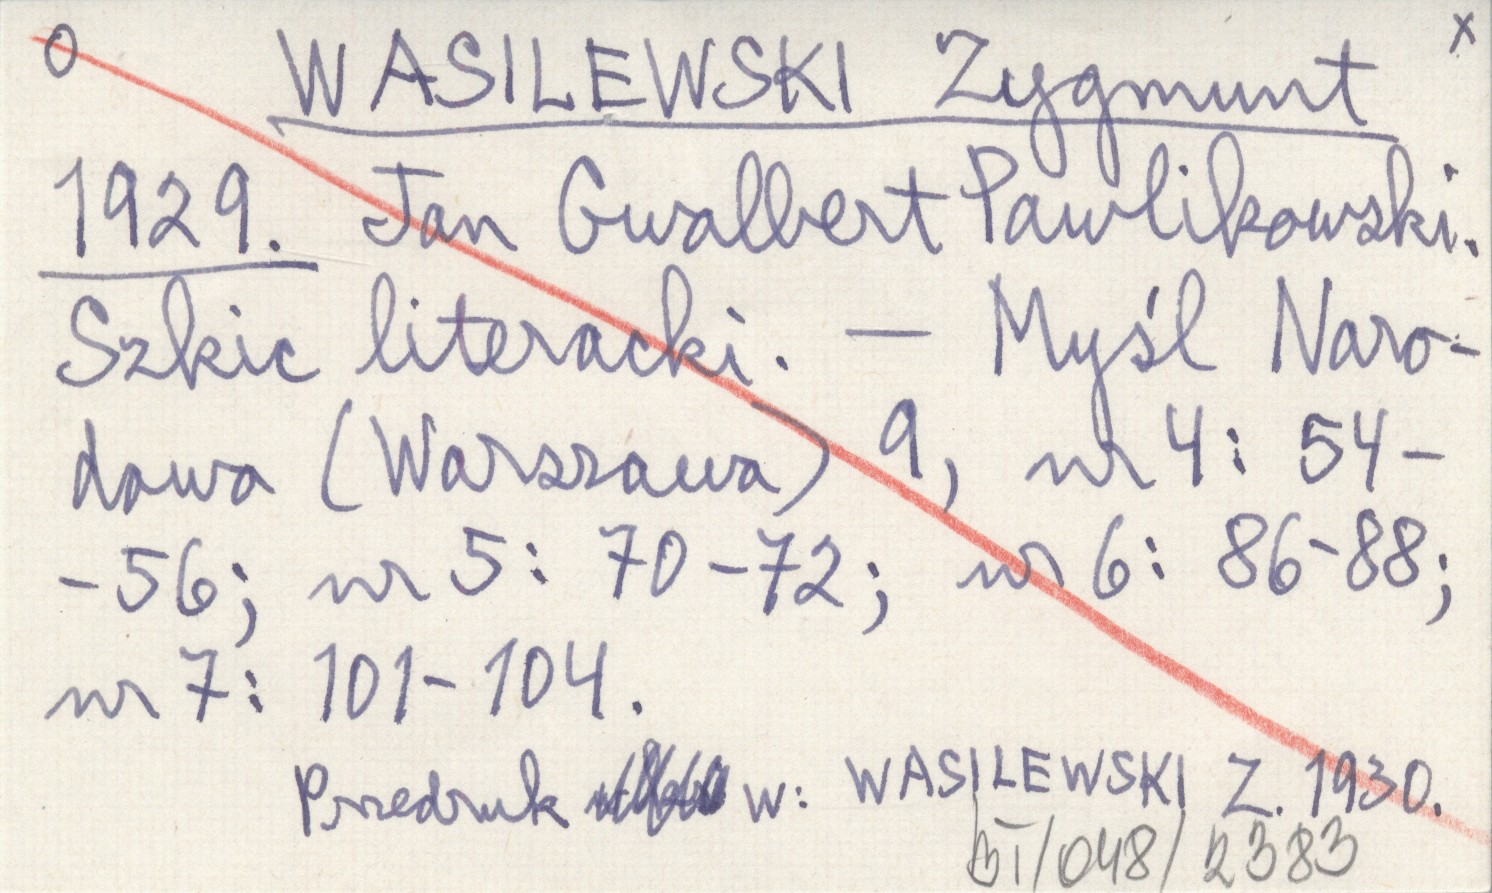 O WASILEWSKI Zygmunt x
1929. Jan Gwalbert Pawlikowski.
Szkic literacki. — Myśl Naro-
dowa (Warszawa) 9, nr 4: 54-
-56; nr 5: 70-72; nr 6: 86-88;
nr 7: 101-104.
Przedruk w: WASILEWSKI Z. 1930.
/048/2383